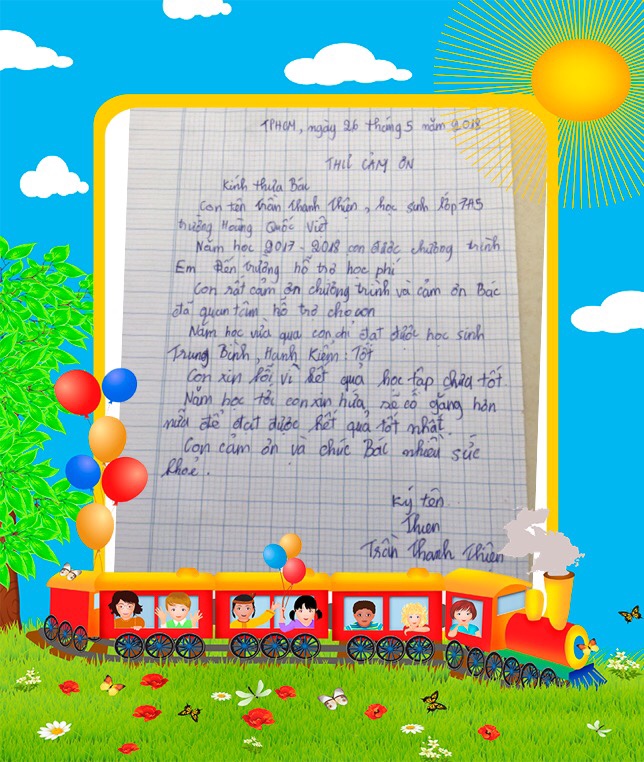 TPHCM, ngày 26 tháng 5 năm 2018
THƯ CẢM ƠN
Kính thưa Bác
Con tên Trần Thanh Thiên, học sinh lớp 7A5
trường Hoàng Quốc Việt
Năm học 2017 - 2018 con được chương trình
Em Đến trường hỗ trợ học phí
Con rất cảm ơn chương trình và cảm ơn Bác
đã quan tâm hỗ trợ cho con
Năm học vừa qua con chỉ đạt được học sinh
Trung Bình, Hạnh Kiểm: Tốt
Con xin lỗi vì kết quả học tập chưa tốt.
Năm học tới con xin hứa sẽ cố gắng hơn
nữa để đạt được kết quả tốt nhất.
Con cảm ơn và chúc Bác nhiều sức
khoẻ.
Ký tên
Thien
Trần Thanh Thiên